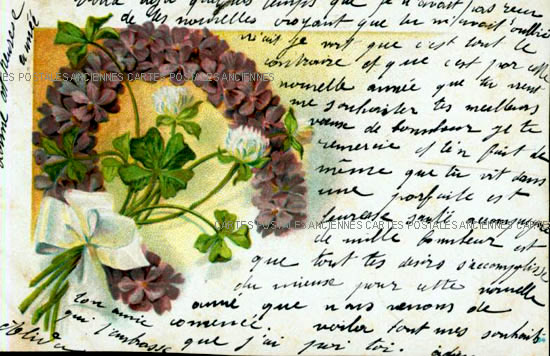 voilà déjà quelques temps que je n'avait pas reçu
de tes nouvelles croyant que tu m'avait oublié
je voit que c'est tout le
contraire et que c'est par cette
nouvelle année que tu vient
me souhaiter tes meilleurs
vœux de bonheur je te
remercie et t'en fait de
même que tu vit dans
une parfaite est
heureuse santé accompagné
de mille bonheur est
que tout tes desirs s'accomplisse
du mieuse pour cette nouvelle
année que nous venons de
commencé. voilà tout mes souhait
que j'ai pour toi
ton amie
qui t'embrasse
bonne et heureuse
année
POSTALES ANCIENNES CARTES POSTALES ANCIENNES CARTES POSTALES ANCIENNES CARTES POSTALES
POSTALES ANCIENNES CARTES POSTALES ANCIENNES CARTES